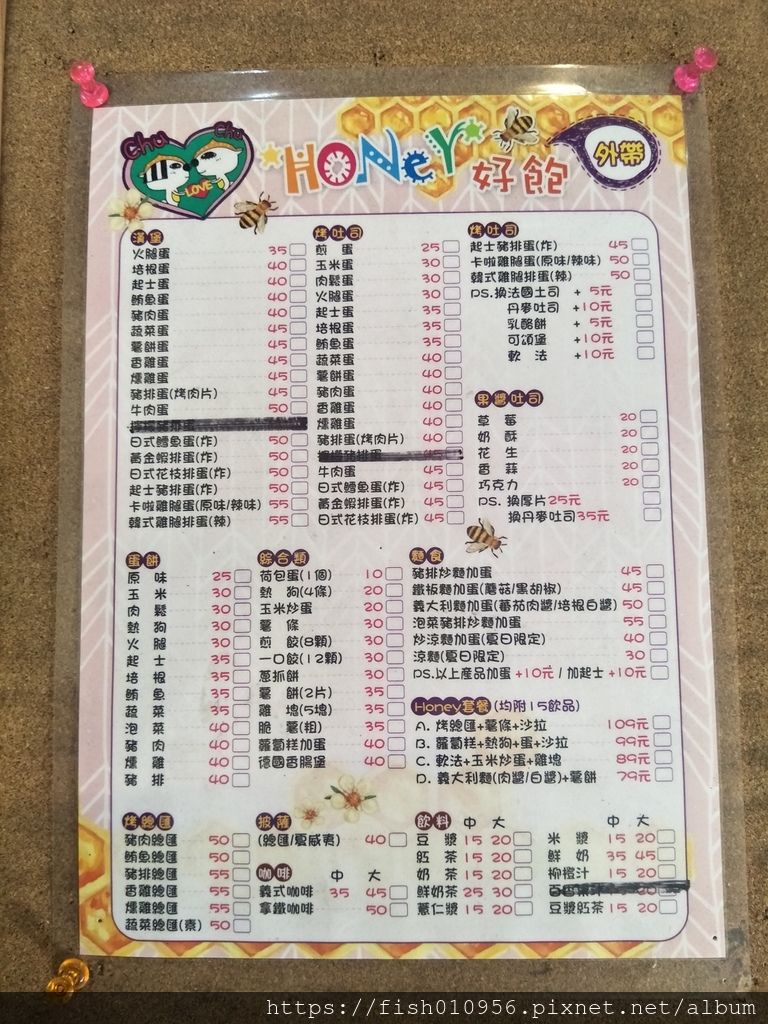 chu chu
LOVE
HONeY 好飽
外帶
漢堡
火腿蛋 35
培根蛋 40
起士蛋 40
鮪魚蛋 40
豬肉蛋 45
蔬菜蛋 45
薯餅蛋 45
香雞蛋 45
燻雞蛋 45
豬排蛋(烤肉片) 45
牛肉蛋 50
日式鱈魚蛋(炸) 50
黃金蝦排蛋(炸) 50
日式花枝排蛋(炸) 50
起士豬排蛋(炸) 50
卡啦雞腿蛋(原味/辣味) 55
韓式雞腿排蛋(辣) 55
烤吐司
煎 蛋 25
玉米蛋 30
肉鬆蛋 30
火腿蛋 30
起士蛋 35
培根蛋 35
鮪魚蛋 35
蔬菜蛋 40
薯餅蛋 40
豬肉蛋 40
香雞蛋 40
燻雞蛋 40
豬排蛋(烤肉片) 40
牛肉蛋 45
日式鱈魚蛋(炸) 45
黃金蝦排蛋(炸) 45
日式花枝排蛋(炸) 45
烤吐司
起士豬排蛋(炸) 45
卡啦雞腿蛋(原味/辣味) 50
韓式雞腿排蛋(辣) 50
PS.換法國土司 + 5元
丹麥吐司 +10元
乳酪餅 + 5元
可頌堡 +10元
軟 法 +10元
果醬吐司
草 莓 20
奶 酥 20
花 生 20
香 蒜 20
巧克力 20
PS. 換厚片25元
換丹麥吐司35元
蛋餅
原 味 25
玉 米 30
肉 鬆 30
熱 狗 30
火 腿 30
起 士 35
培 根 35
鮪 魚 35
蔬 菜 35
泡 菜 40
豬 肉 40
燻 雞 40
豬 排 40
綜合類
荷包蛋(1個) 10
熱 狗(4條) 20
玉米炒蛋 20
薯 條 30
煎 餃(8顆) 30
一口餃(12顆) 30
蔥抓餅 30
薯 餅(2片) 35
雞 塊(5塊) 35
脆 薯(粗) 35
蘿蔔糕加蛋 40
德國香腸堡 40
麵食
豬排炒麵加蛋 45
鐵板麵加蛋(蘑菇/黑胡椒) 45
義大利麵加蛋(蕃茄肉醬/培根白醬) 50
泡菜豬排炒麵加蛋 55
炒涼麵加蛋(夏日限定) 40
涼麵(夏日限定) 30
PS.以上產品加蛋+10元 / 加起士+10元
Honey套餐(均附15飲品)
A. 烤總匯+薯條+沙拉 109元
B. 蘿蔔糕+熱狗+蛋+沙拉 99元
C. 軟法+玉米炒蛋+雞塊 89元
D. 義大利麵(肉醬/白醬)+薯餅 79元
烤總匯
豬肉總匯 50
鮪魚總匯 50
豬排總匯 55
香雞總匯 55
燻雞總匯 55
蔬菜總匯(素) 50
披薩
(總匯/夏威夷) 40
咖啡 中 大
義式咖啡 35 45
拿鐵咖啡 50
飲料 中 大
豆 漿 15 20
紅 茶 15 20
奶 茶 15 20
鮮奶茶 25 30
薏仁漿 15 20
中 大
米 漿 15 20
鮮 奶 35 45
柳橙汁 15 20
豆漿紅茶 15 20
https://fish010956.pixnet.net/album